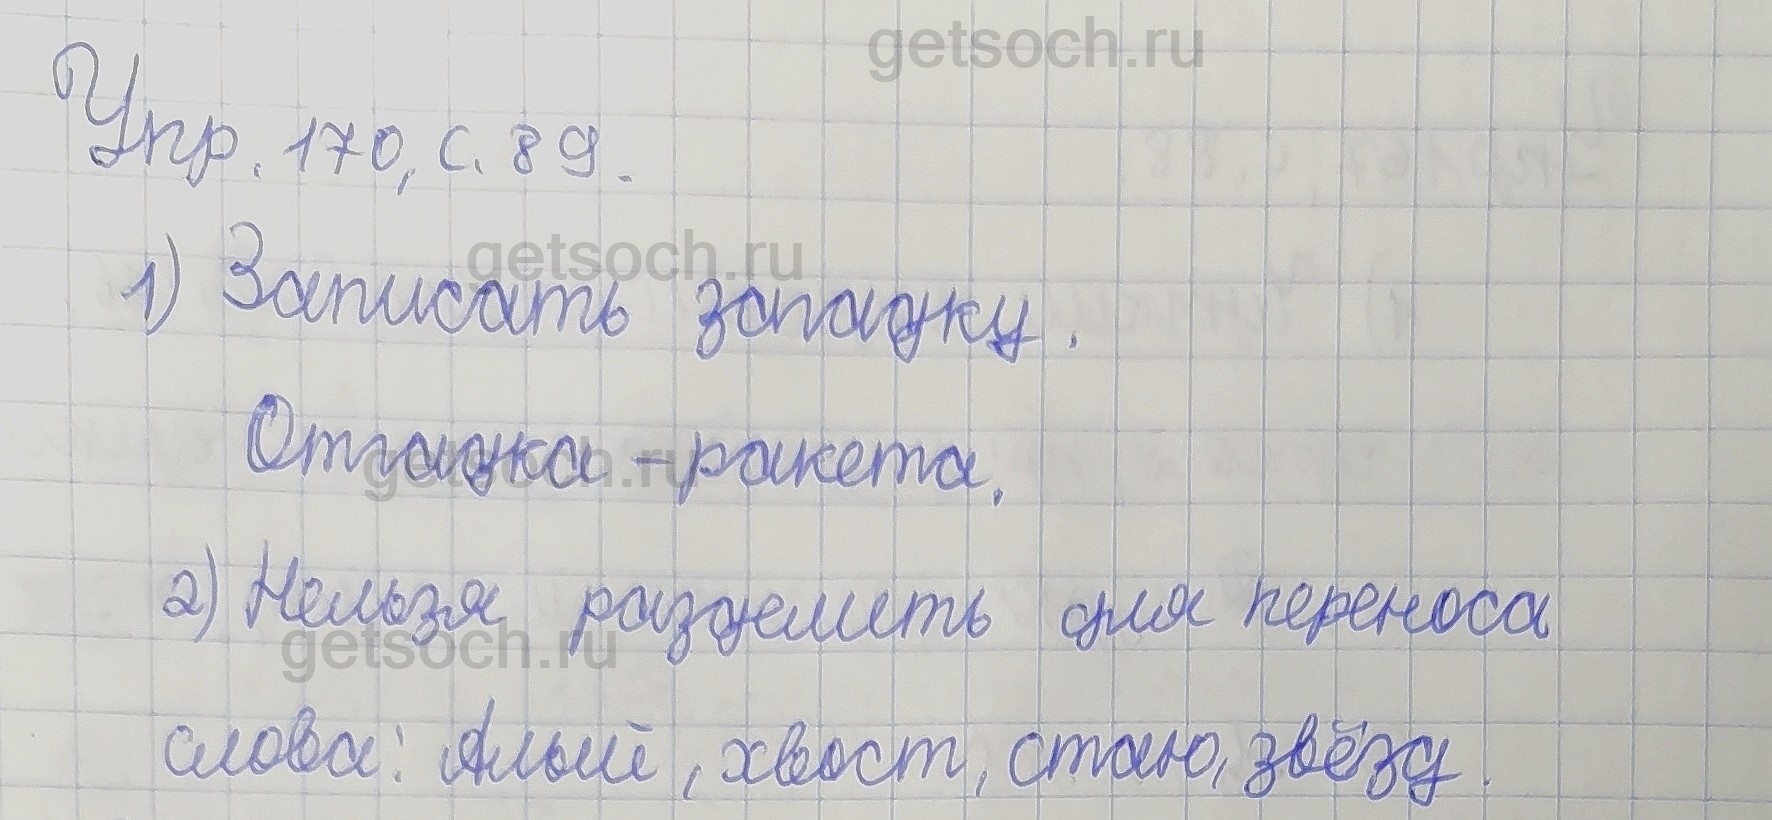 getsoch.ru
Упр. 170, с. 89.
getsoch.ru
1) Записать загадку.
Отгадка - ракета.
getsoch.ru
2) Нельзя разделить для переноса
getsoch.ru
слова: Алый, хвост, стаю, звёзд.